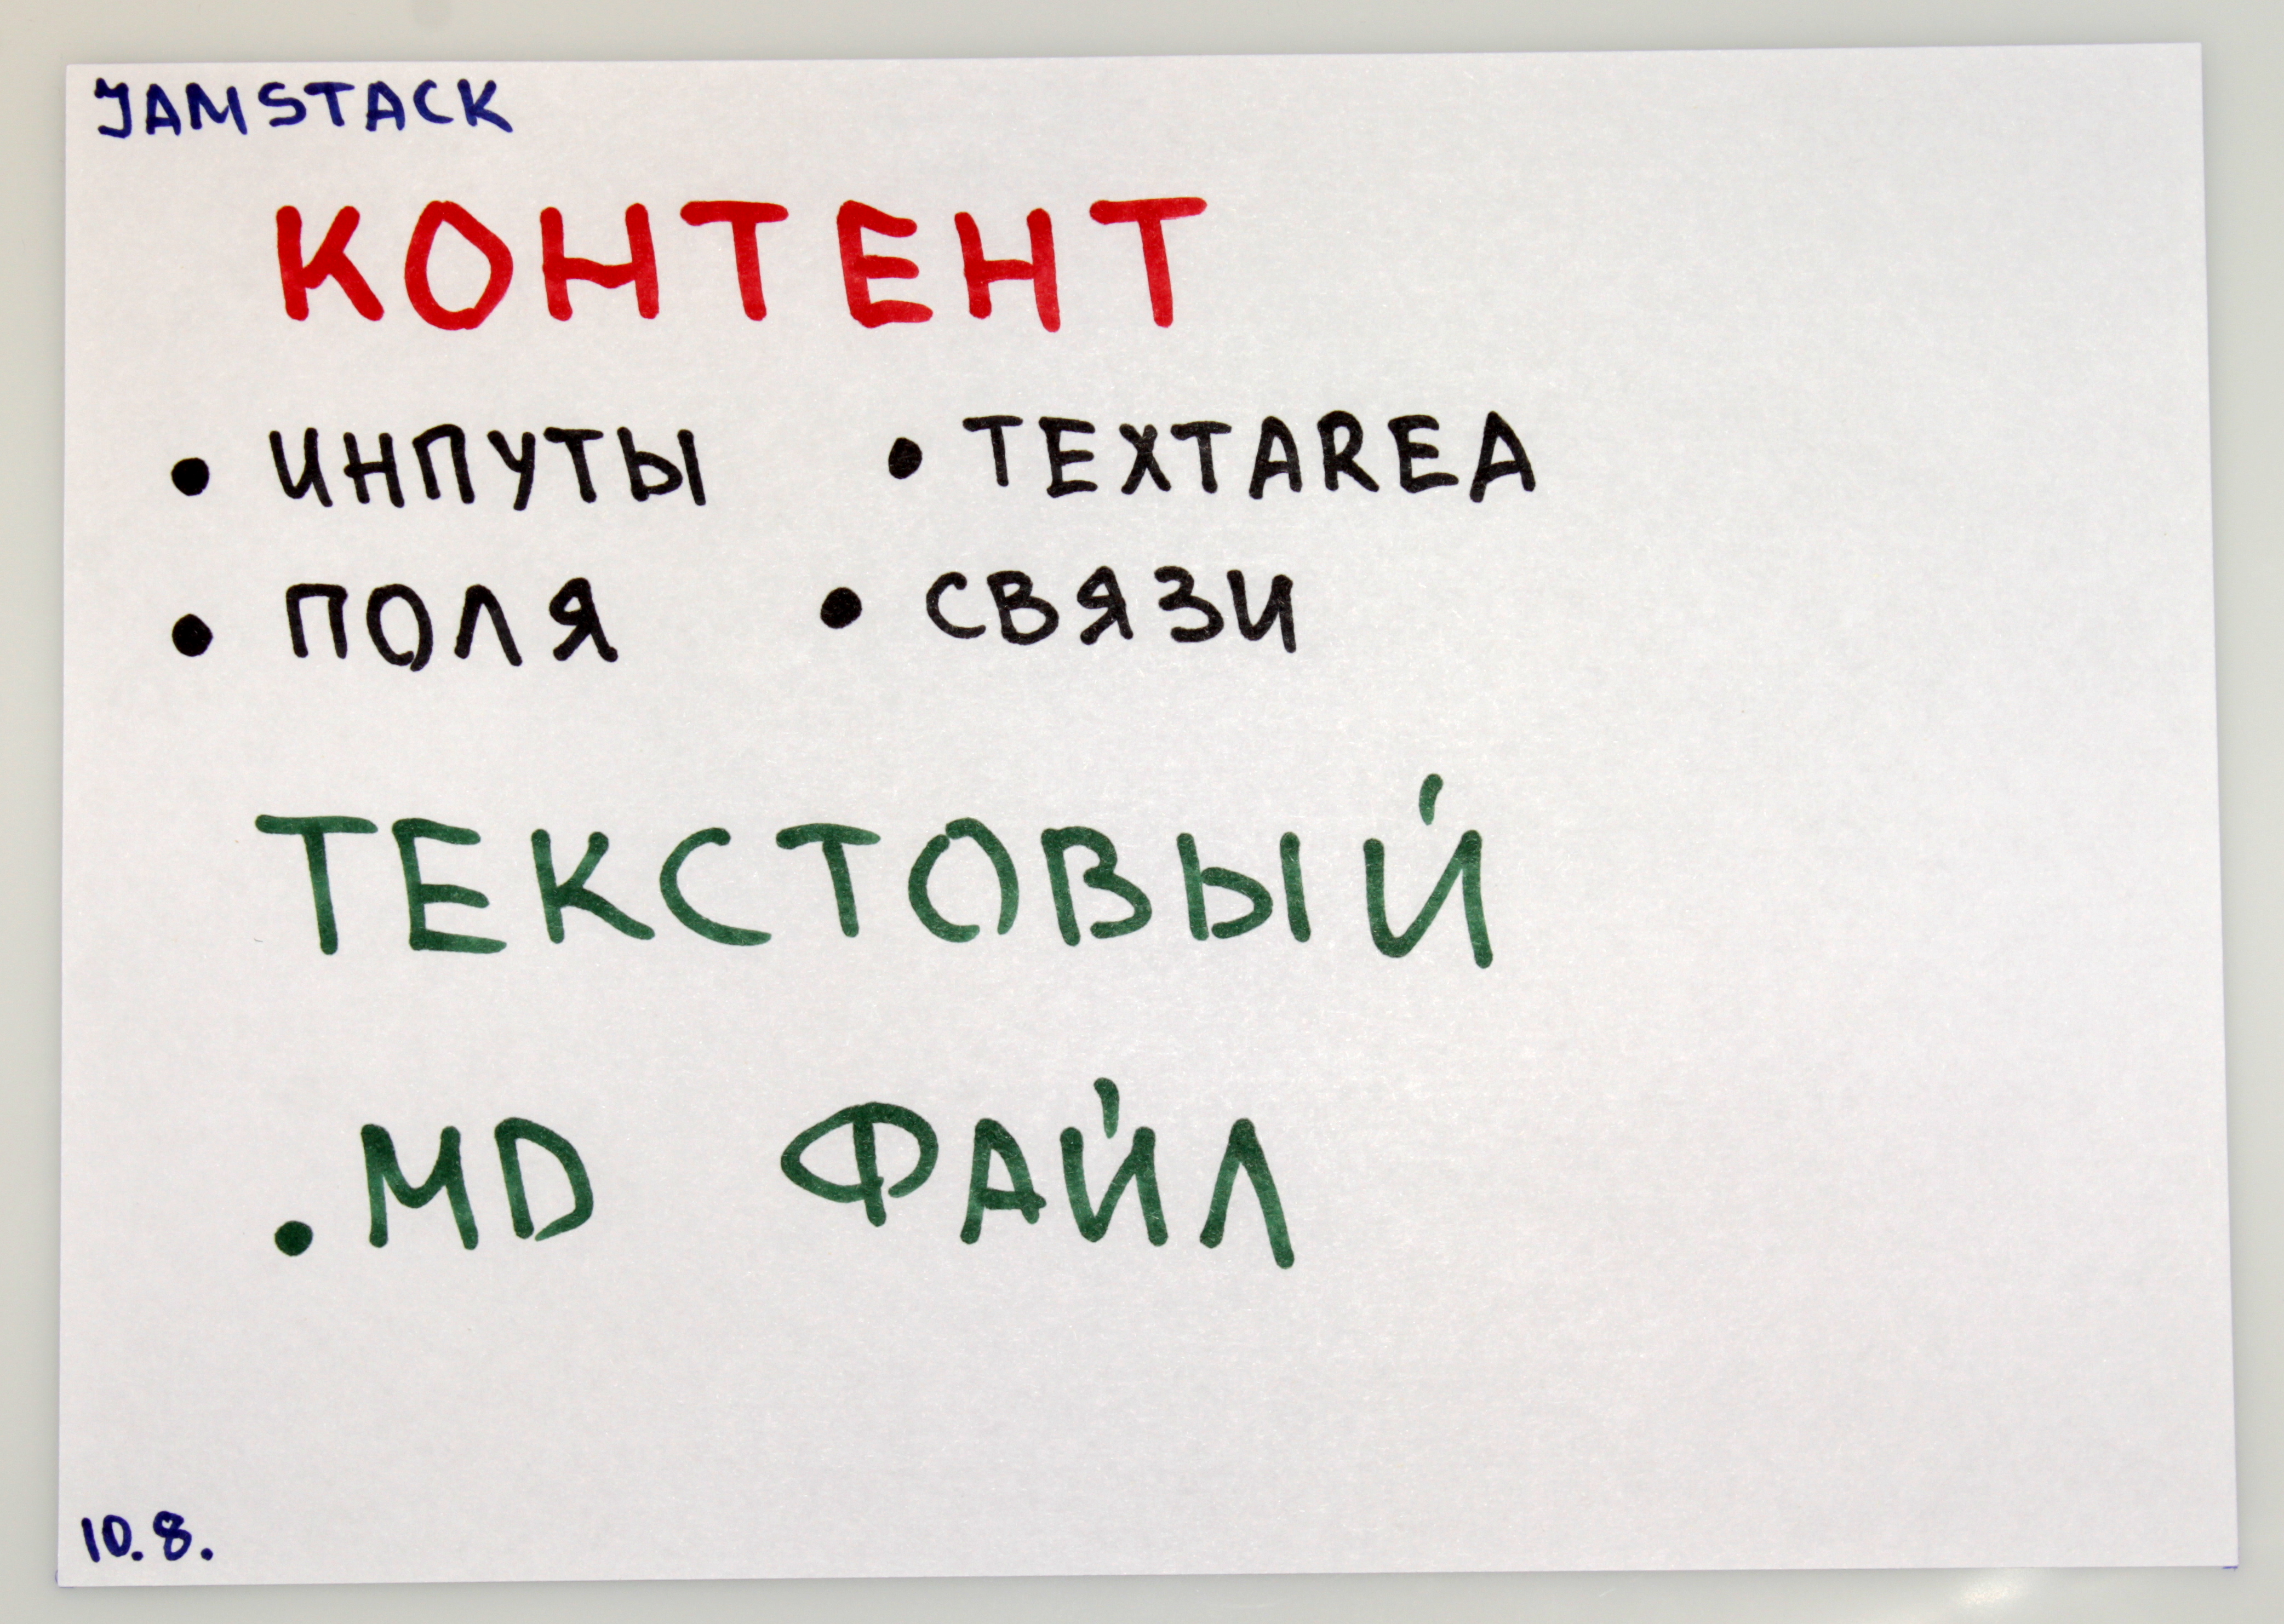 JAMSTACK
КОНТЕНТ
• ИНПУТЫ • TEXTAREA
• ПОЛЯ • СВЯЗИ
ТЕКСТОВЫЙ
.MD ФАЙЛ
10.8.